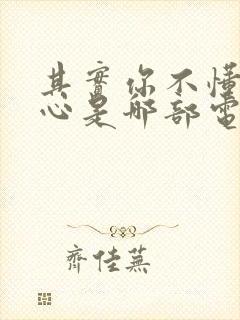 其實你不懂
心是那部電
齊佳蕪